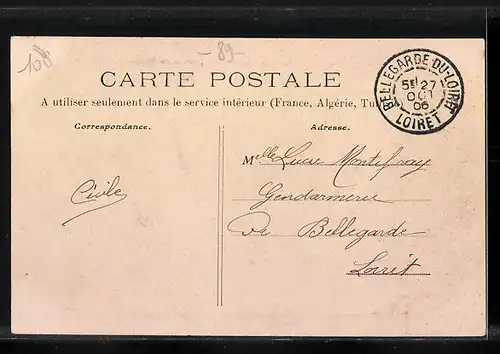 108
- 89 -
CARTE POSTALE
A utiliser seulement dans le service intérieur (France, Algérie, Tu
BELLEGARDE-DU-LOIRET
5E 27
OCT
06
LOIRET
Correspondance.
Adresse.
Melle Lucie Montefray
Gendarmerie
Cécile
de Bellegarde
Loiret